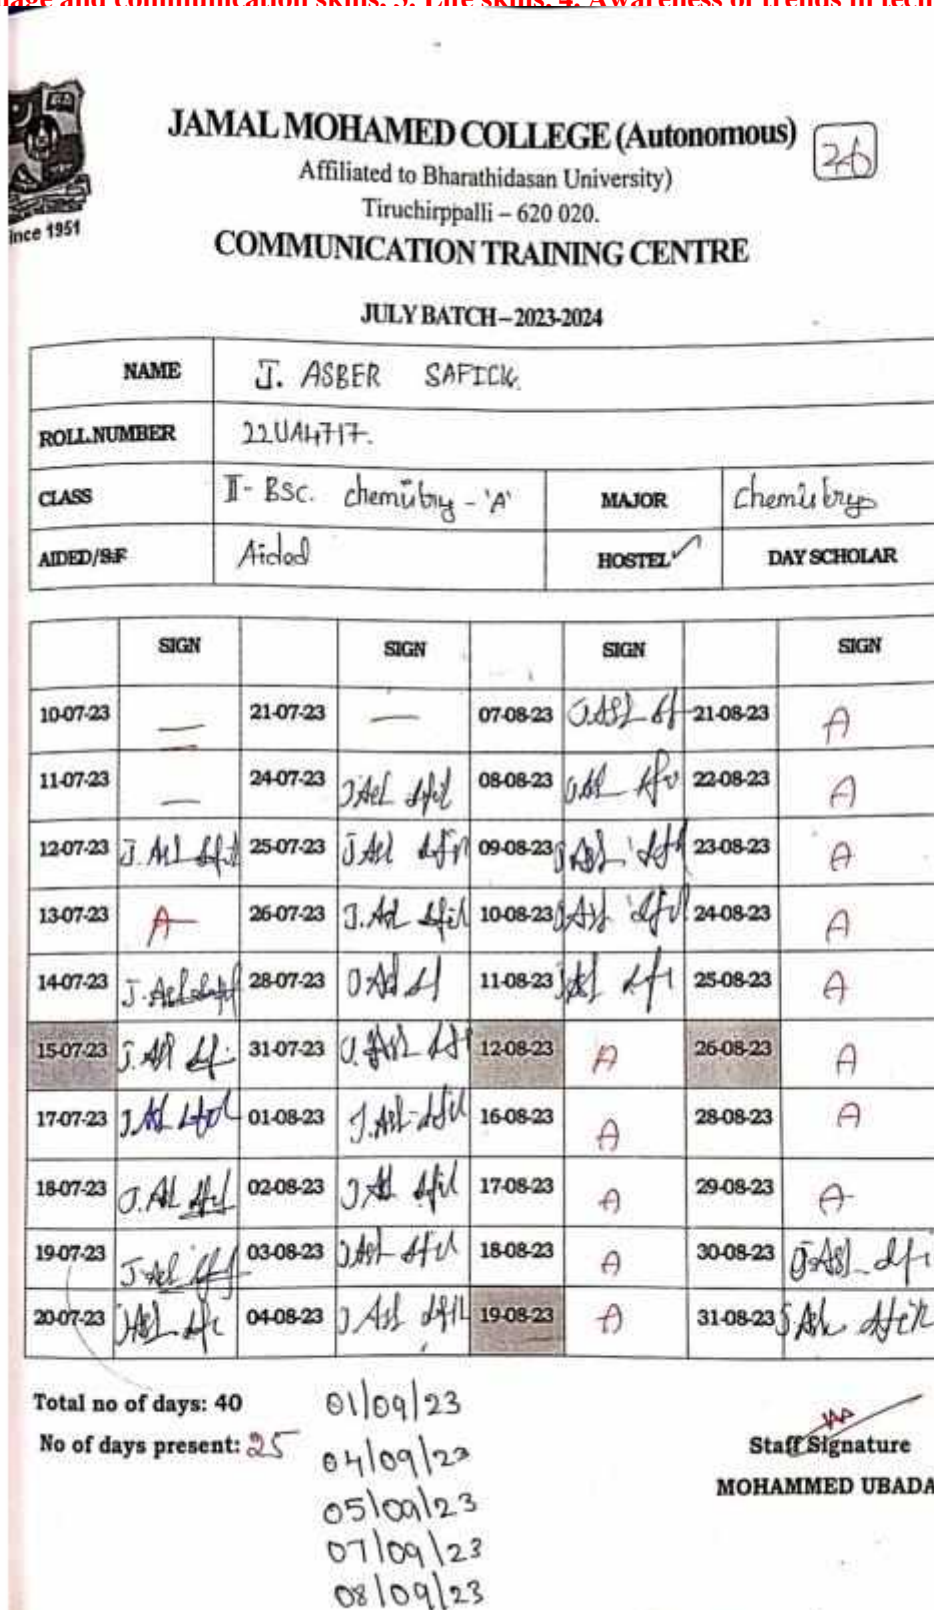 age and communication skills. 3. Life skills. 4. Awareness of trends in tech
JAMAL MOHAMED COLLEGE (Autonomous)
26
Affiliated to Bharathidasan University)
Tiruchirppalli – 620 020.
ince 1951
COMMUNICATION TRAINING CENTRE
JULY BATCH – 2023-2024
NAME J. ASBER SAFICK.
ROLL.NUMBER 22UA4717.
CLASS II - BSc. chemistry - 'A' MAJOR Chemistry
AIDED/S.F Aided HOSTEL ✓ DAY SCHOLAR
SIGN SIGN SIGN SIGN
10-07-23 — 21-07-23 — 07-08-23 21-08-23 A
11-07-23 — 24-07-23 08-08-23 22-08-23 A
12-07-23 25-07-23 09-08-23 23-08-23 A
13-07-23 A 26-07-23 10-08-23 24-08-23 A
14-07-23 28-07-23 11-08-23 25-08-23 A
15-07-23 31-07-23 12-08-23 A 26-08-23 A
17-07-23 01-08-23 16-08-23 A 28-08-23 A
18-07-23 02-08-23 17-08-23 A 29-08-23 A
19-07-23 03-08-23 18-08-23 A 30-08-23
20-07-23 04-08-23 19-08-23 A 31-08-23
Total no of days: 40 01/09/23
No of days present: 25 04/09/23
Staff Signature
MOHAMMED UBADA
05/09/23
07/09/23
08/09/23